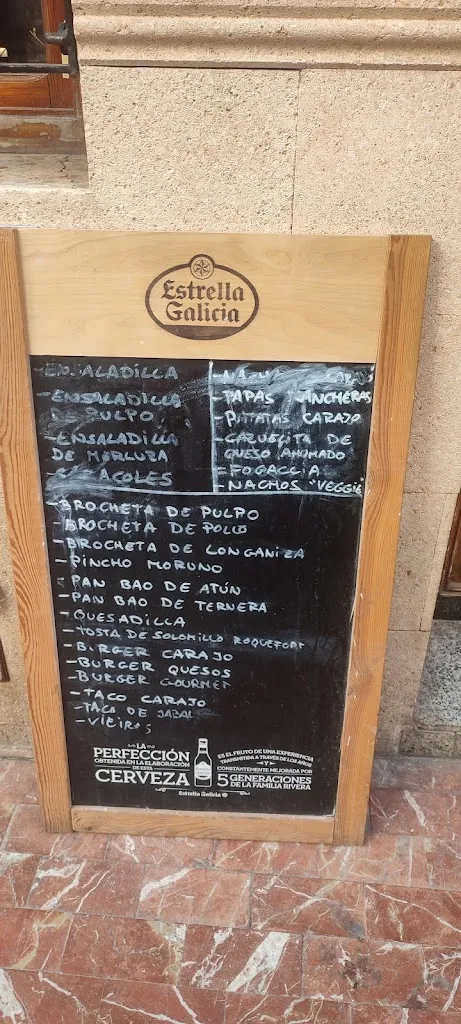 Estrella
Galicia
-ENSALADILLA
-ENSALADILLA
DE PULPO
-ENSALADILLA
DE MORLUZA
-PAPAS RANCHERAS
-PATATAS CARAJO
-CAZUELITA DE
QUESO AHUMADO
-FOGACCIA
-NACHOS "VEGGIE
-BROCHETA DE PULPO
-BROCHETA DE POLLO
-BROCHETA DE LONGANIZA
-PINCHO MORUNO
-PAN BAO DE ATÚN
-PAN BAO DE TERNERA
-QUESADILLA
-TOSTA DE SOLOMILLO ROQUEFORT
-BURGER CARAJO
-BURGER QUESOS
-BURGER GOURMET
-TACO CARAJO
-TACO DE
-VIEIRAS
LA
PERFECCIÓN
OBTENIDA EN LA ELABORACIÓN
DE ESTA
CERVEZA
ES EL FRUTO DE UNA EXPERIENCIA
TRANSMITIDA A TRAVÉS DE LOS AÑOS
Y
CONSTANTEMENTE MEJORADA POR
5 GENERACIONES
DE LA FAMILIA RIVERA
Estrella Galicia